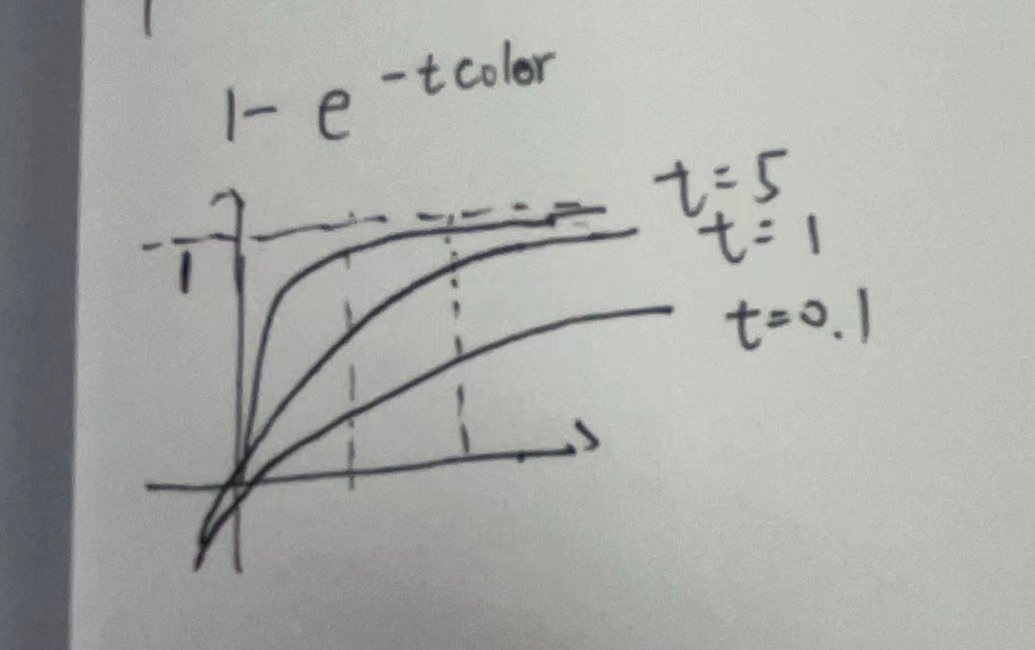 1- e -tcolor
t=5
t=1
1
t=0.1